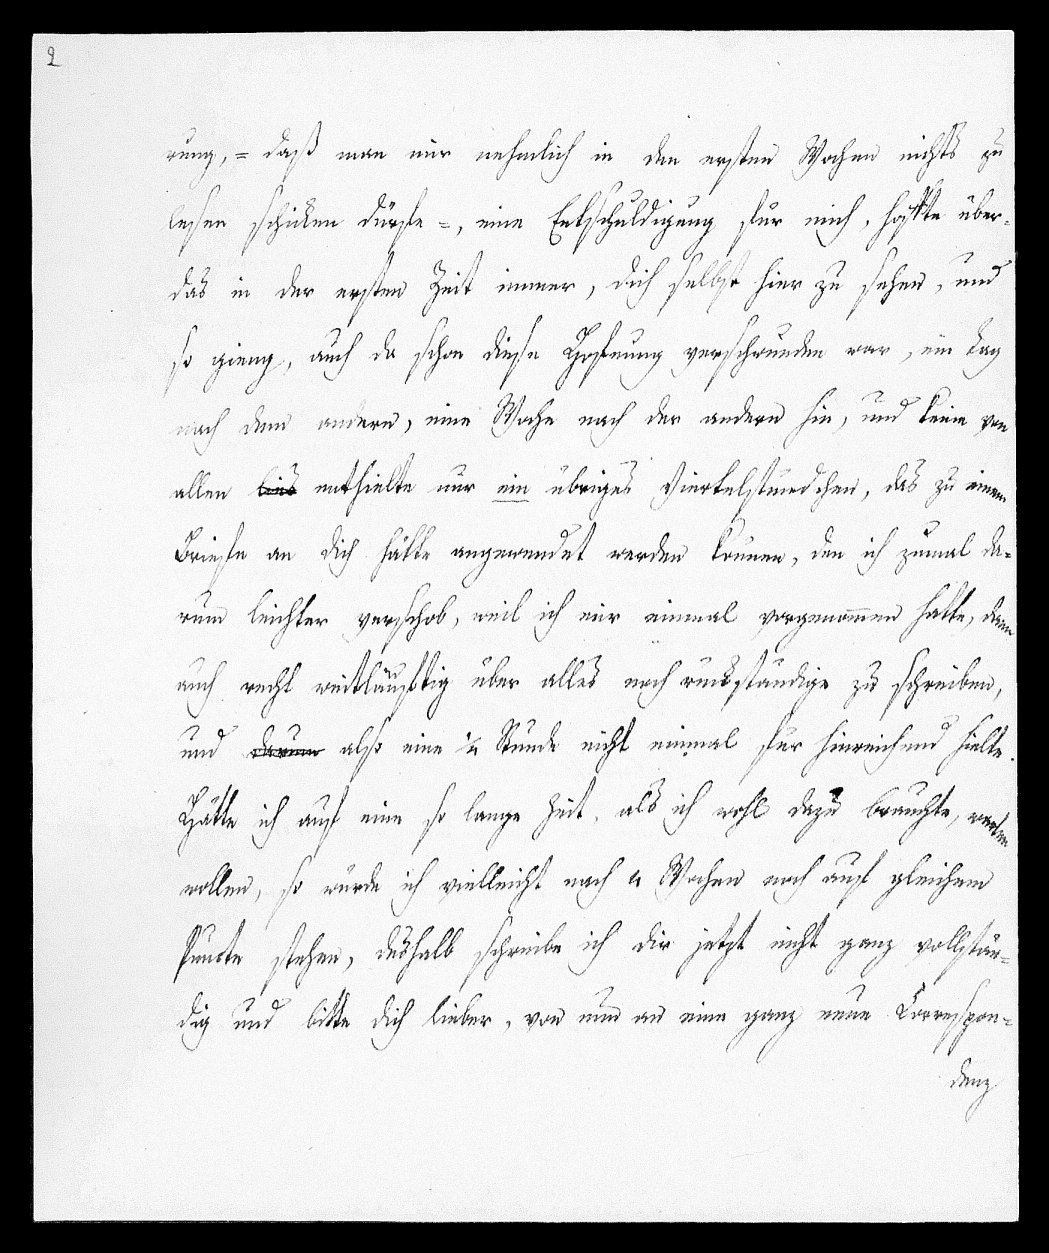 2
rung, = daß man mir nehmlich in den ersten Wochen nichts zu
lesen schicken dürfe =, eine Entschuldigung für mich, hoffte über-
das in der ersten Zeit immer, dich selbst hier zu sehen, und
so gieng, auch da schon diese Hofnung verschwunden war, ein Tag
nach dem andern, eine Woche nach der andern hin, und keine von
allen bis enthielte nur ein übriges Viertelstündchen, das zu einem
Briefe an dich hätte angewendet werden können, den ich zumal da-
rum leichter verschob, weil ich mir einmal vorgenom̅en hatte, dann
auch recht weitläuftig über alles noch rückständige zu schreiben,
und darum also eine ¼ Stunde nicht einmal für hinreichend hielte.
Hätte ich auf eine so lange Zeit, als ich wohl dazu brauchte, warten
wollen, so würde ich vielleicht nach 4 Wochen noch auf gleichem
Puncte stehen, deshalb schreibe ich dir jetzt nicht ganz vollstän-
dig und bitte dich lieber, von nun an eine ganz neue Correspon-
denz